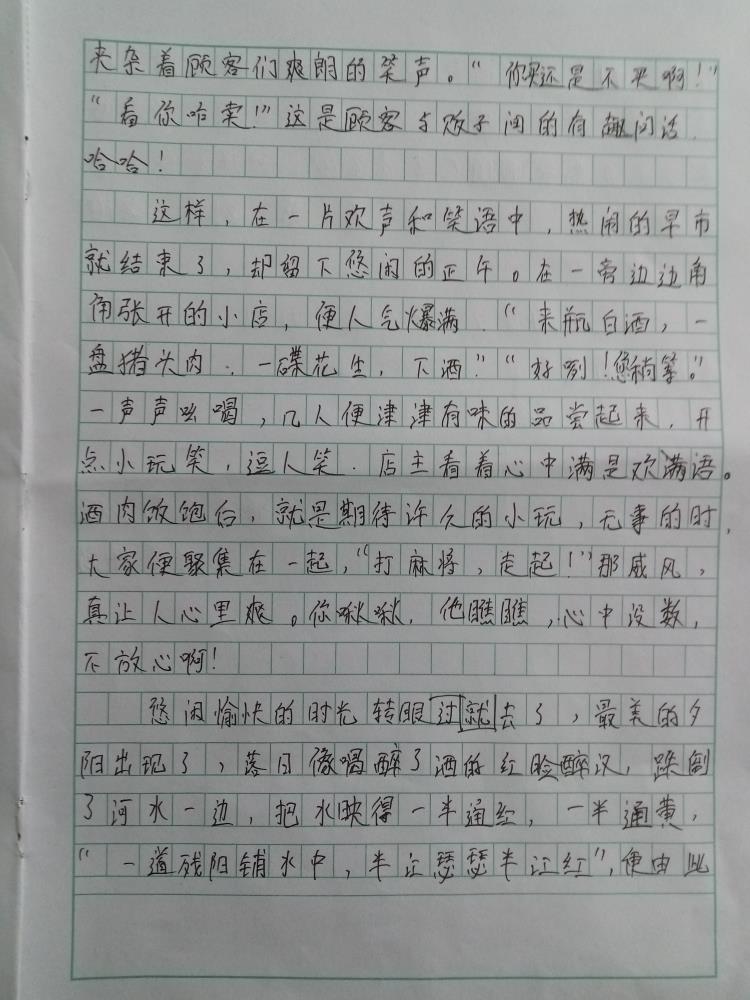 夹杂着顾客们爽朗的笑声。“你买还是不买啊！”
“看你咋卖！”这是顾客与贩子间的有趣问话.
哈哈！
这样，在一片欢声和笑语中，热闹的早市
就结束了，却留下悠闲的正午。在一旁边边角
角张开的小店，便人气爆满.“来瓶白酒，一
盘猪头肉.一碟花生，下酒”“好咧！您稍等。”
一声声吆喝，几人便津津有味的品尝起来，开
点小玩笑，逗人笑.店主看着心中满是欢满语。
酒肉饭饱后，就是期待许久的小玩，无事的时，
大家便聚集在一起，“打麻将，走起！”那威风，
真让人心里爽。你瞅瞅，他瞧瞧，心中没数，
不放心啊！
悠闲愉快的时光转眼过就去了，最美的夕
阳出现了，落日像喝醉了酒的红脸醉汉，跌倒
了河水一边，把水映得一半通红，一半通黄，
“一道残阳铺水中，半江瑟瑟半江红”，便由此